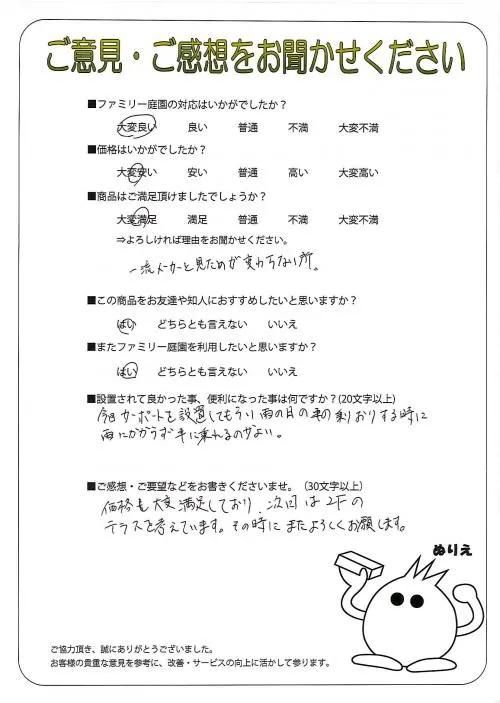 ご意見・ご感想をお聞かせください
■ファミリー庭園の対応はいかがでしたか？
大変良い 良い 普通 不満 大変不満
■価格はいかがでしたか？
大変安い 安い 普通 高い 大変高い
■商品はご満足頂けましたでしょうか？
大変満足 満足 普通 不満 大変不満
⇒よろしければ理由をお聞かせください。
一流メーカーと見ためが変わらない所。
■この商品をお友達や知人におすすめしたいと思いますか？
はい どちらとも言えない いいえ
■またファミリー庭園を利用したいと思いますか？
はい どちらとも言えない いいえ
■設置されて良かった事、便利になった事は何ですか？(20文字以上)
今回カーポートを設置してもらい雨の日の車の乗りおりする時に
雨にかからず に乗れるのがよい。
■ご感想・ご要望などをお書きくださいませ。（30文字以上）
価格も大変満足しており、次回は2Fの
テラスを考えています。その時にまたよろしくお願します。
ぬりえ
ご協力頂き、誠にありがとうございました。
お客様の貴重な意見を参考に、改善・サービスの向上に活かして参ります。